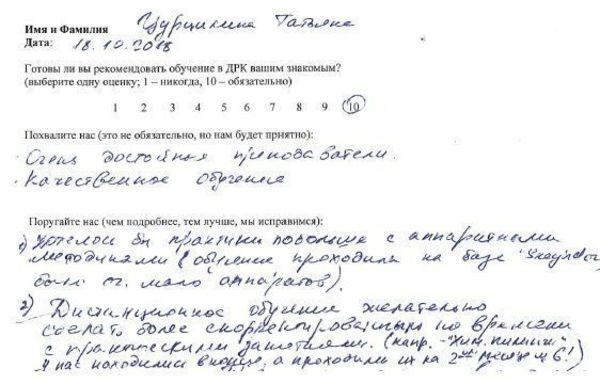 Имя и Фамилия Цурцилина Татьяна
Дата: 18.10.2018
Готовы ли вы рекомендовать обучение в ДРК вашим знакомым?
(выберите одну оценку; 1 – никогда, 10 – обязательно)
1 2 3 4 5 6 7 8 9 10
Похвалите нас (это не обязательно, но нам будет приятно):
· Очень достойные преподаватели.
· Качественное обучение
Поругайте нас (чем подробнее, тем лучше, мы исправимся):
1) Хотелось бы практики побольше с аппаратными
методиками (обучение проходили на базе
было оч. мало аппаратов).
2) Дистанционное обучение желательно
сделать более скорректированным по времени
с практическими занятиями. (напр. - "Хим. пилинги"
у нас находились в конце, а проходили их на 2ой неделе из 6!)